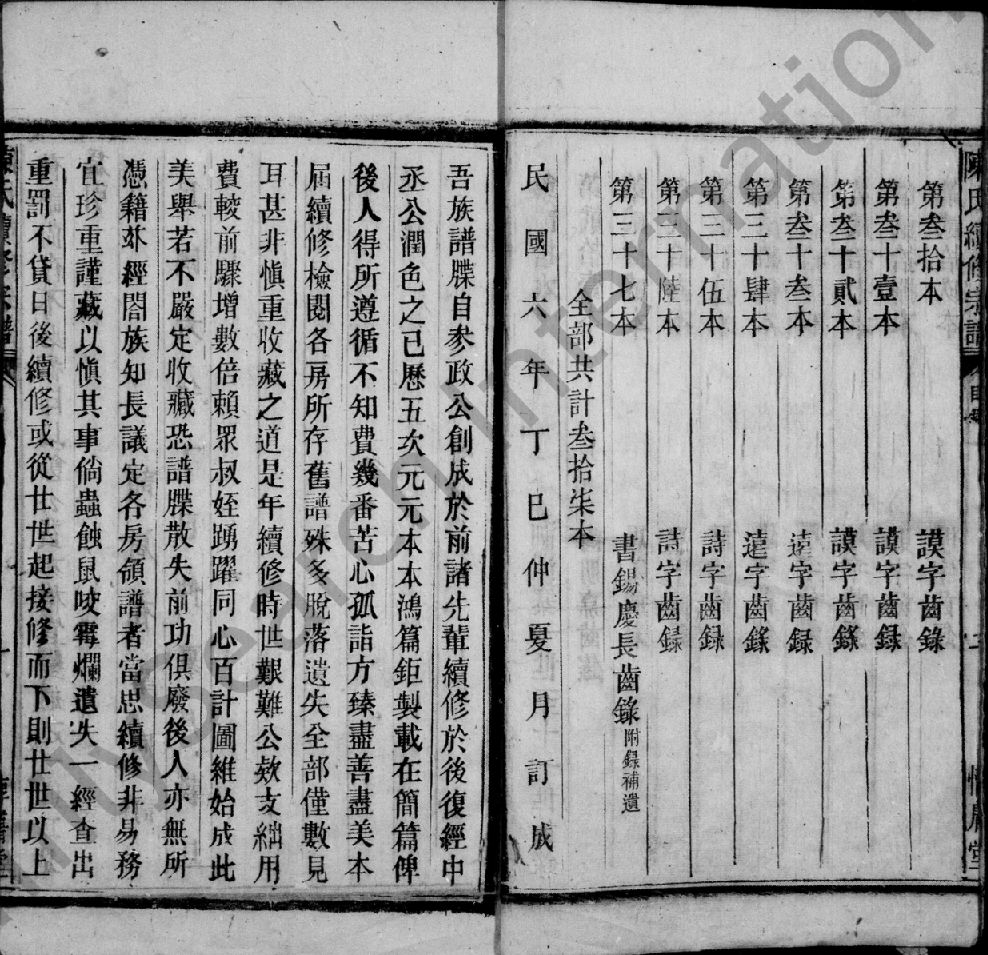 陳氏續修宗譜
第叁拾本 謨字齒錄
第叁十壹本 謨字齒録
第叁十貳本 謨字齒錄
第叁十叁本 遠字齒錄
第三十肆本 遠字齒錄
第三十伍本 詩字齒録
第三十陸本 詩字齒録
第三十七本 書錫慶長齒錄附録補遺
全部共計叁拾柒本
民國六年丁巳仲夏月訂成
吾族譜牒自參政公創成於前諸先輩續修於後復經中
丞公潤色之已歷五次元元本本鴻篇鉅製載在簡篇俾
後人得所遵循不知費幾番苦心孤詣方臻盡善盡美本
屆續修檢閱各房所存舊譜殊多脫落遺失全部僅數見
耳甚非愼重收藏之道是年續修時世艱難公欵支絀用
費較前驟增數倍賴眾叔姪踴躍同心百計圖維始成此
美舉若不嚴定收藏恐譜牒散失前功俱廢後人亦無所
憑籍玆經閤族知長議定各房領譜者當思續修非易務
宜珍重謹藏以愼其事倘蟲蝕鼠咬霉爛遺失一經查出
重罰不貸日後續修或從廿世起接修而下則廿世以上
陳氏續修宗譜
International